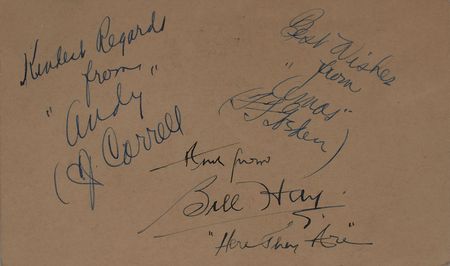 Kindest Regards
from
"Andy"
(J Correll
Best Wishes
from
"Amos"
(FF Gosden)
And from
Bill Hay.
"Here They Are"